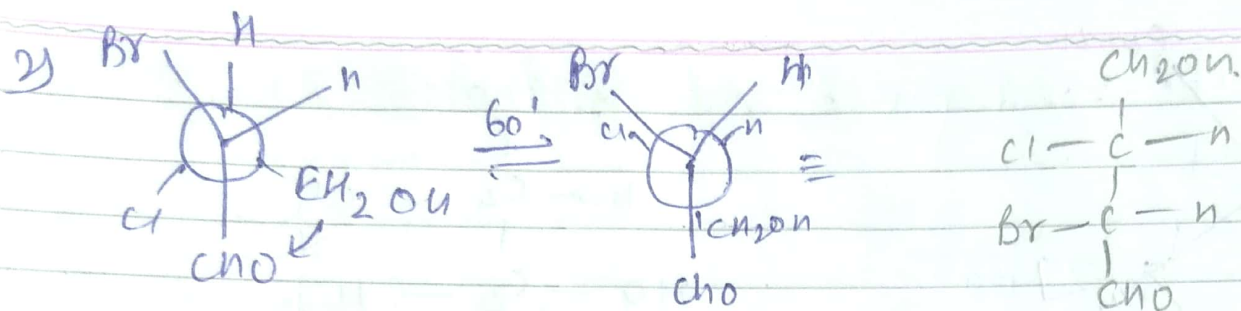 2)
Br H H
Cl CH2OH
CHO
60°
Br H
Cl H
CH2OH
CHO
≡
CH2OH.
Cl — C — H
Br — C — H
CHO